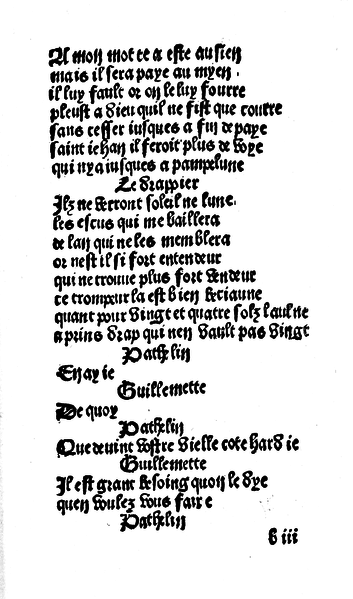 A mon mot ce a este au sien
mais il sera paye au myen.
il luy fault or on le luy fourre
pleust a dieu quil ne fist que courre
sans cesser iusques a fin de paye
saint iehan il feroit plus de voye
qui nya iusques a pampelune
Le drappier
Ilz ne verront soleil ne lune.
les escus qui me baillera
de lan qui ne les memblera
or nest il si fort entendeur
qui ne treuue plus fort vendeur
ce trompeur la est bien beciaune
quant pour vingt et quatre solz laulne
a prins drap qui nen vault pas vingt
Pathelin
En ay ie
Guillemette
De quoy
Pathelin
Que deuint vostre vielle cote hardie
Guillemette
Il est grant besoing quon le dye
quen voulez vous faire
Pathelin
b iii